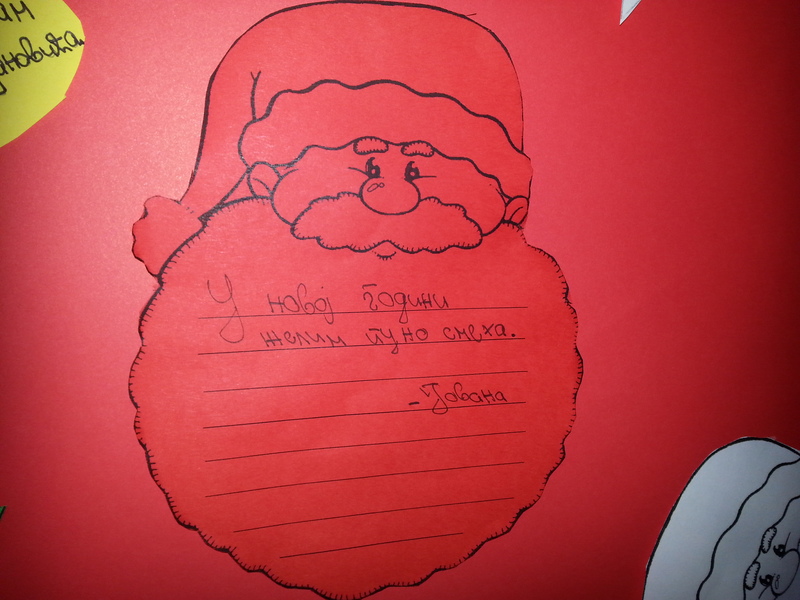 У новој години
желим пуно смеха.
-Јована